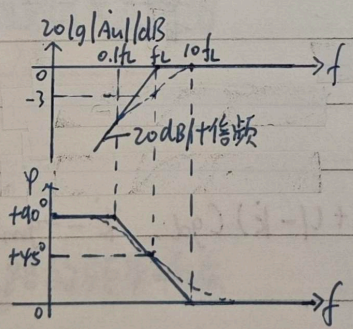 20lg|Au̇|/dB
0.1fL fL 10fL
0 f
-3
20dB/十倍频
φ
+90°
+45°
0 f